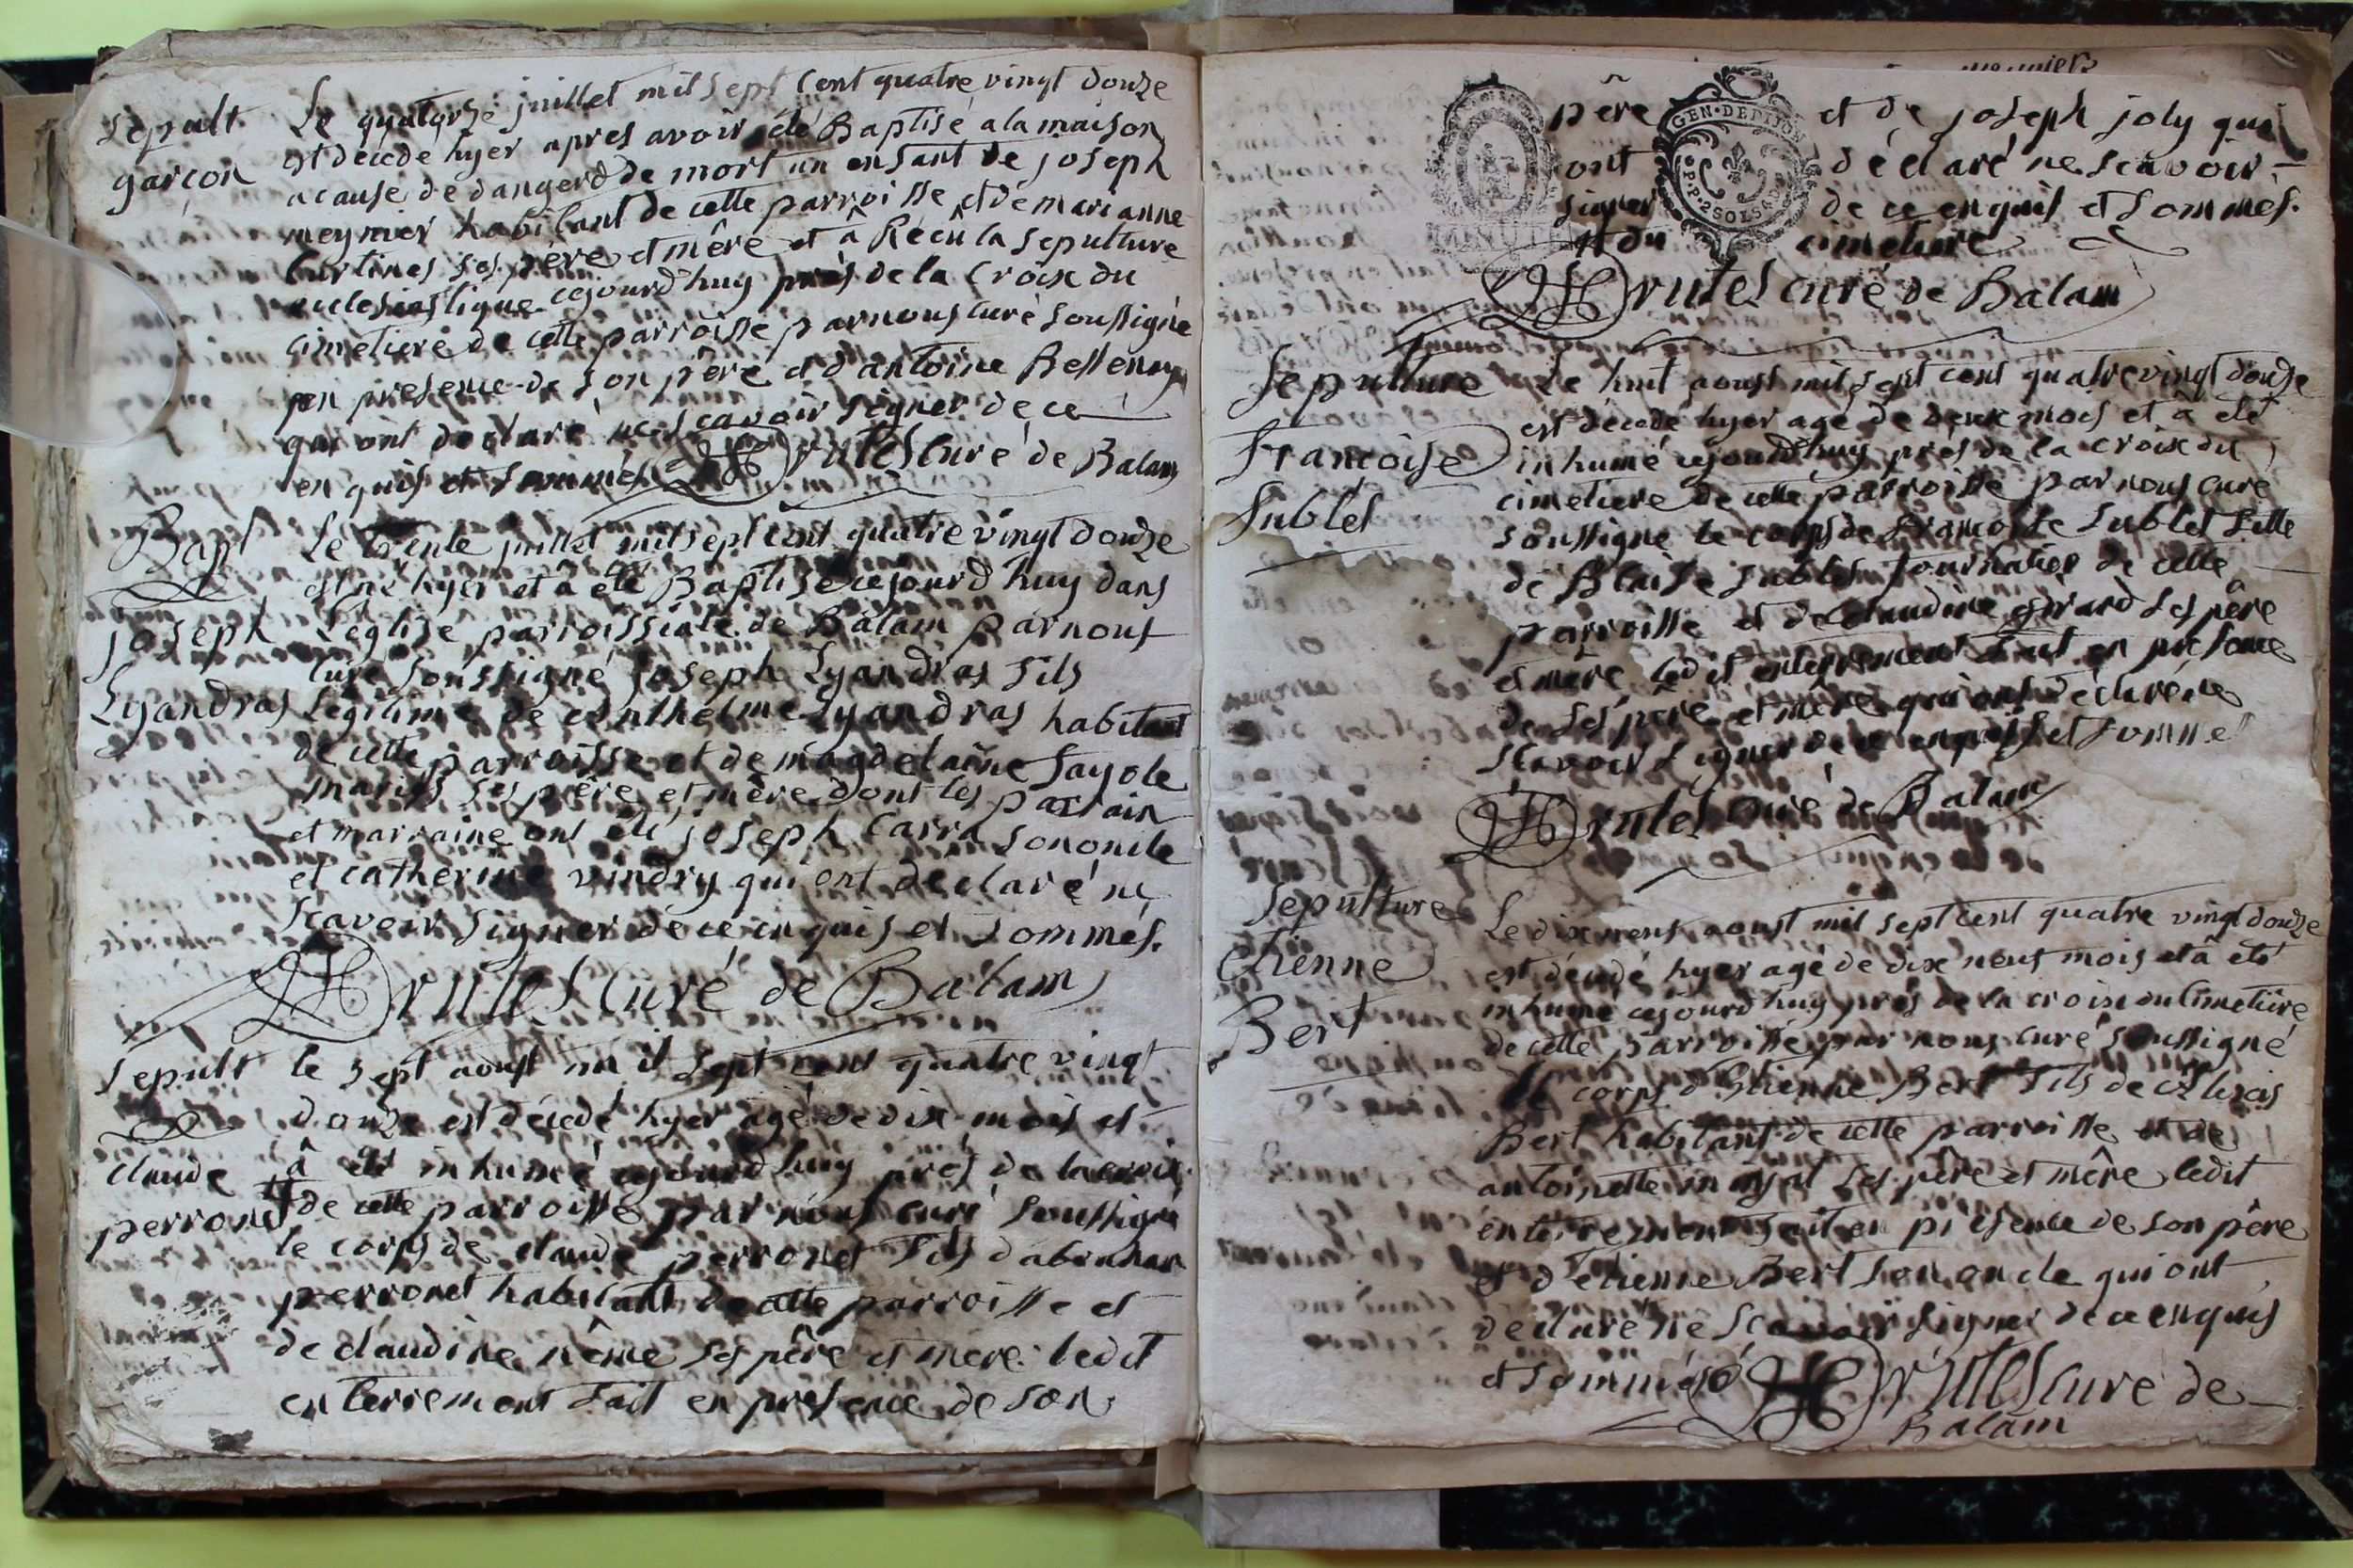 Sepult
garcon
Le quatorze juillet mil sept cent quatre vingt douze
est décedé hyer apres avoir été Baptisé a la maison
a cause de dangerd de mort un enfant de joseph
meynier habitant de cette parroisse et de marianne
Curtines ses père et mère et â Récû la sepulture
ecclesiastique cejourd'huy près de la Croix du
cimetiere de cette parroisse par nous curé soussigné
en presence de son père et d'antoine Bellemy
qui ont declaré ne scavoir signer de ce
en quis et sommés Drutel Curé de Balam
Bapt
joseph
Lyandras
Le trente juillet mil sept cent quatre vingt douze
est né hyer et â été Baptisé cejourd'huy dans
L'eglise parroissiale de Balam par nous
Curé soussigné joseph Lyandras fils
Légitime de Anthelme Lyandras habitant
de cette parroisse et de magdelaine fayole
mariés ses père et mère dont les parrain
et marraine ont été joseph Carra son oncle
et catherine vindry qui ont déclaré ne
scavoir signer de ce en quis et sommés.
Drutel Curé de Balam
Sepult
claude
perronet
le sept aoust mil sept cent quatre vingt
douze est décedé hyer agé de dix mois et
â été inhumé cejourd'huy près de la croix
# de cette parroisse par nous curé soussigné
le corps de claude perronet fils d'abraham
perronet habitant de cette parroisse et
de claudine nême ses père et mère ledit
enterrement fait en presence de son
père et de joseph joly qui
ont déclaré ne scavoir
signer de ce enquis et sommés.
# du cimetiere
GEN·DE DIJON
P.P. 2 SOLS 4 D
MINUTE
Drutel curé de Balam
Sepulture
francoise
Sublet
Le huit aoust mil sept cent quatre vingt douze
est décedé hyer agé de deux mois et â été
inhumé cejourd'huy près de la croix du
cimetiere de cette parroisse par nous curé
soussigné le corps de francoise Sublet fille
de Blaise Sublet journalier de cette
parroisse et de claudine girard ses père
et mère ledit enterrement fait en presence
de ses père et mère qui ont déclaré ne
scavoir signer de ce enquis et sommé
Drutel curé de Balam
Sepulture
etienne
Bert
Le dix neuf aoust mil sept cent quatre vingt douze
est décedé hyer agé de dix neuf mois et â été
inhumé cejourd'huy près de la croix du cimetiere
de cette parroisse par nous curé soussigné
le corps d'Etienne Bert fils de
Bert habitant de cette parroisse et de
antoinette ses père et mère ledit
enterrement fait en presence de son père
et d'etienne Bert son oncle qui ont
declaré ne scavoir signer de ce enquis
et sommés Drutel curé de
Balam